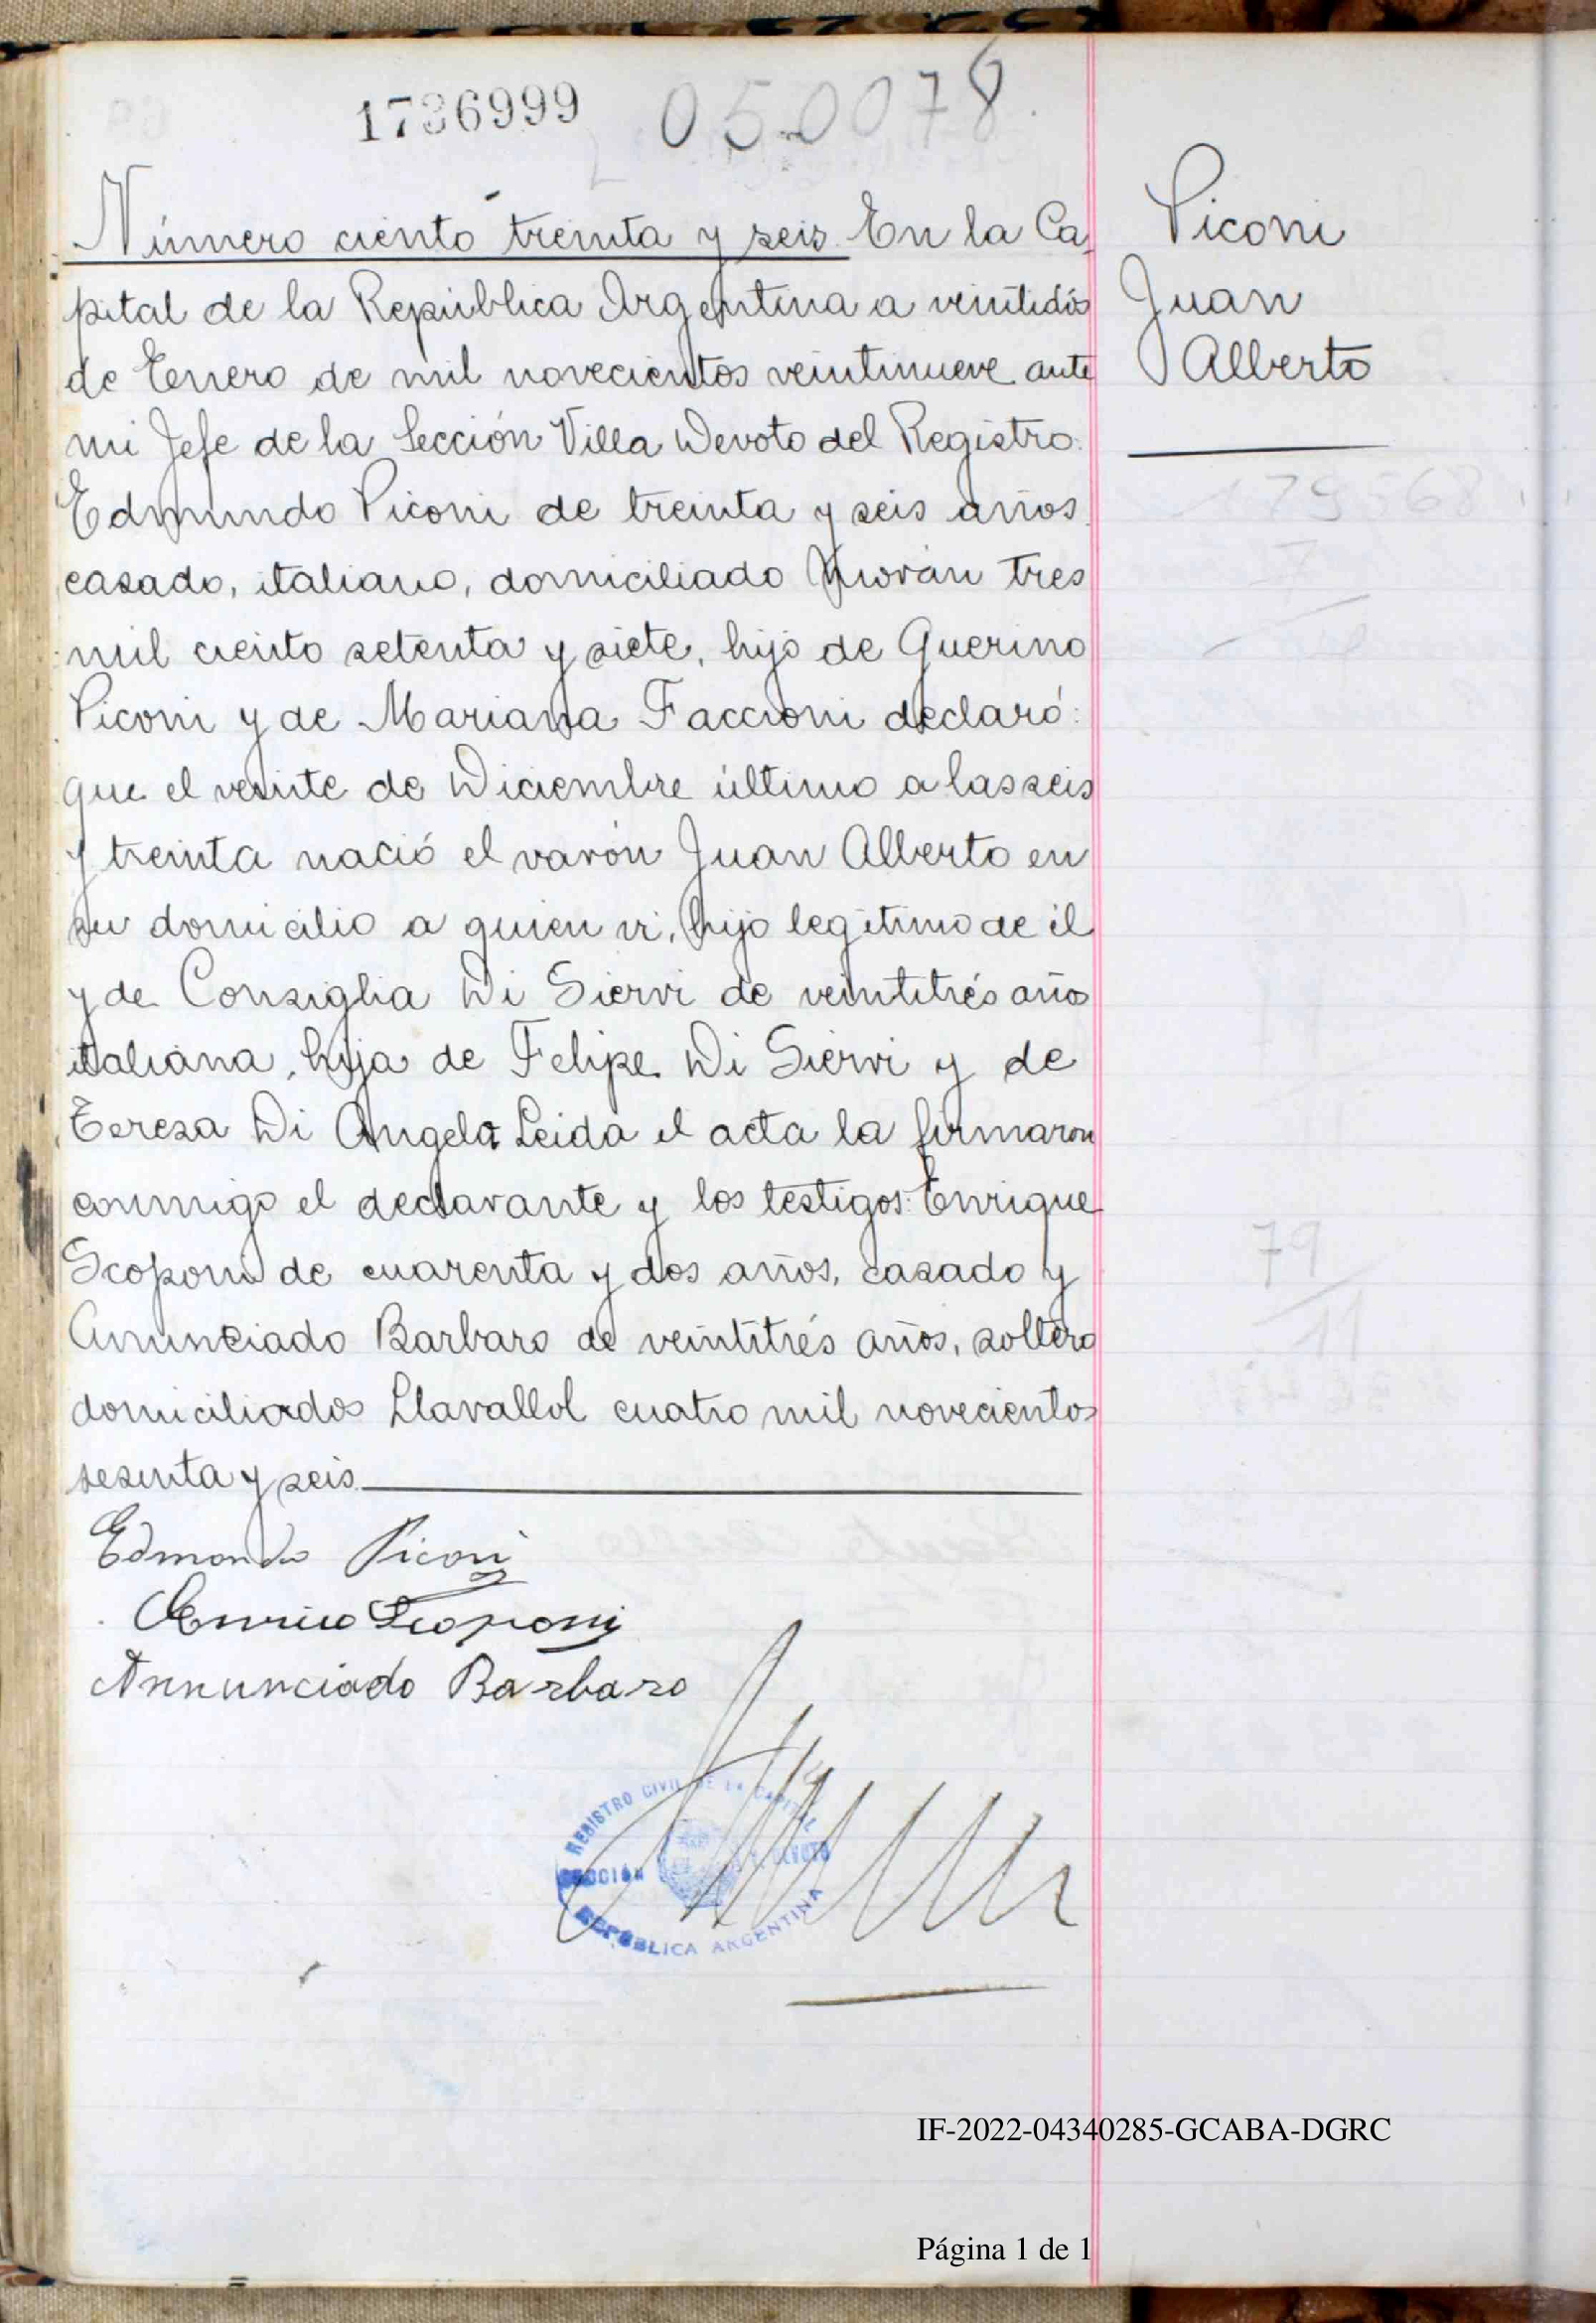 1736999 050078
Número ciento treinta y seis. En la Ca
pital de la República Argentina a veintidós
de Enero de mil novecientos veintinueve ante
mi Jefe de la Sección Villa Devoto del Registro:
Edmundo Piconi de treinta y seis años
casado, italiano, domiciliado Morán tres
mil ciento setenta y siete, hijo de Querino
Piconi y de Mariana Faccioni declaró:
que el veinte de Diciembre último a las seis
y treinta nació el varón Juan Alberto en
su domicilio a quien vi, hijo legítimo de él
y de Consiglia Di Siervi de veintitrés años
italiana, hija de Felipe Di Siervi y de
Teresa Di Angela Leida el acta la firmaron
conmigo el declarante y los testigos: Enrique
Scoponi de cuarenta y dos años, casado y
Anunciado Barbaro de veintitrés años, soltero
domiciliados Llavallol cuatro mil novecientos
sesenta y seis.
Edmondo Piconi
Enrico Scoponi
Annunciado Barbaro
REGISTRO CIVIL DE LA CAPITAL
SECCIÓN V. DEVOTO
REPÚBLICA ARGENTINA
Piconi
Juan
Alberto
179568
7
79
11
IF-2022-04340285-GCABA-DGRC
Página 1 de 1